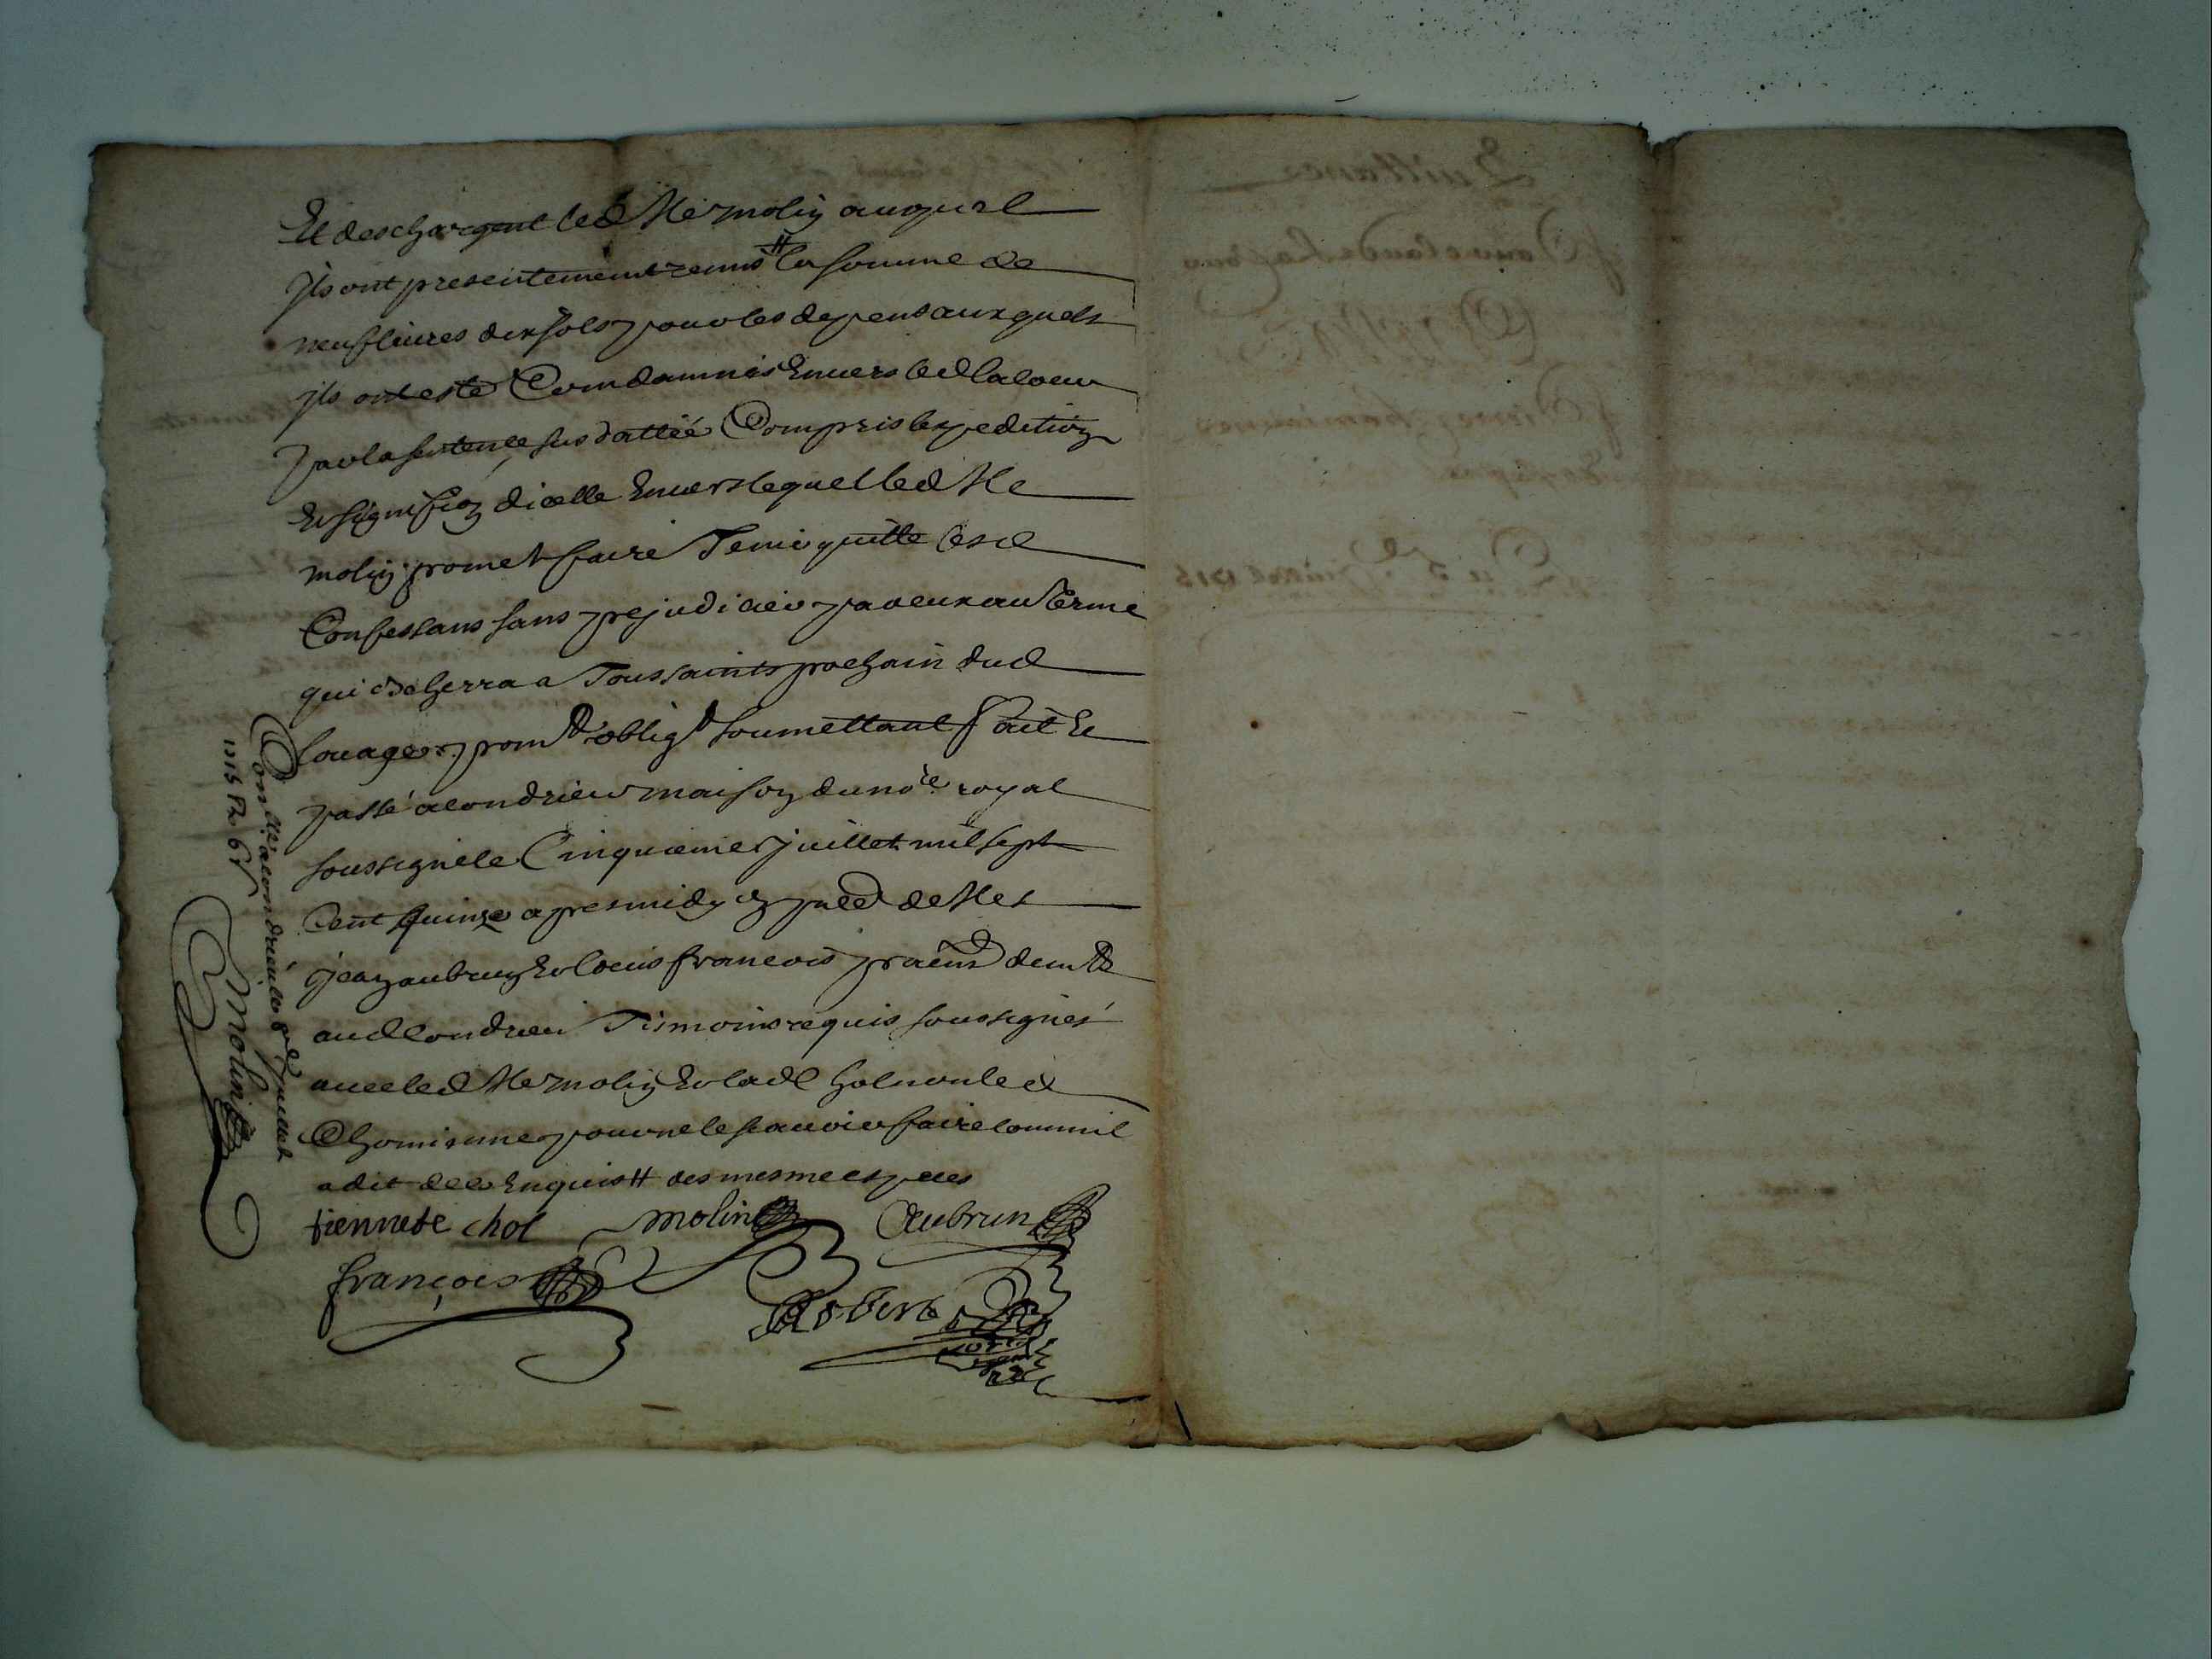 Et deschargent led Me molin auquel
Ils ont presentement remis # la somme de
neuf livres dix sols pour les depens auxquels
ils ont esté Condamnés Envers led
par la sentence sus dattée Compris lexpedition
Et signiffion dicelle Envers lequel led Me
molin promet faire Tenir quitte lesd
Confessans sans prejudicier par eux au terme
qui escherra a Toussaints prochain dud
louage promt obligt soumettant fait Et
passé a condrieu maison du nore royal
soussigné le Cinquieme juillet mil sept
Cent quinze apres midy en pnce de Mes
jean aubrun Et louis francois praens demt
aud condrieu Tesmoins requis soussignés
avec led Me molin Et lad chol non led
Chomienne pour ne le scauoir faire comm il
a dit de ce Enquis # des mesme especes
tiennete chol molin Aubrun
françois
Robert
Conllé a condrieu le juillet
1715 Rx 6s
Molin
Quittance
Du 5e Juillet 1715